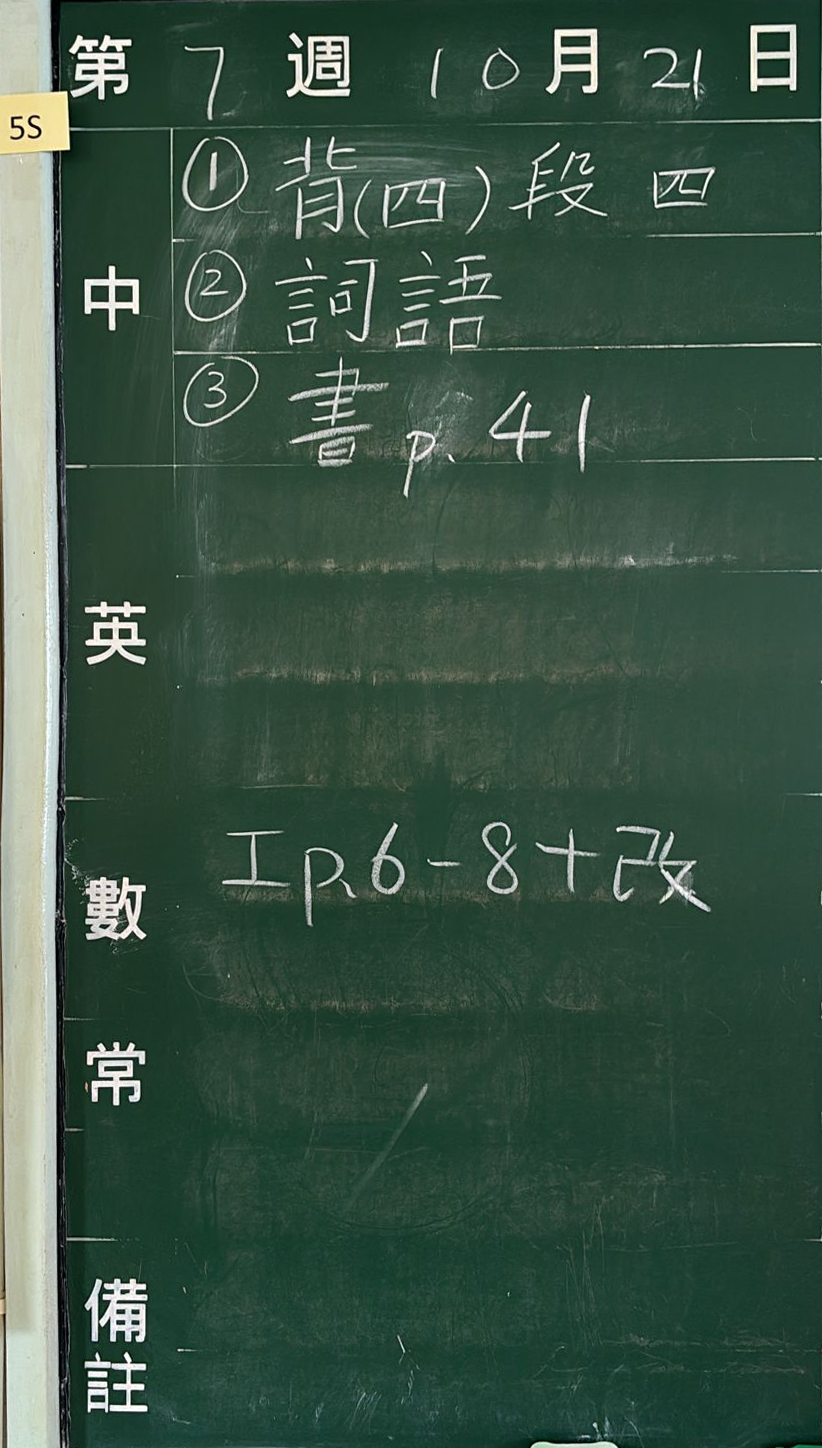 第 7 週 10 月 21 日
5S
中
① 背(四)段 四
② 詞語
③ 書 p. 41
英
數
工 p.6-8+改
常
備註